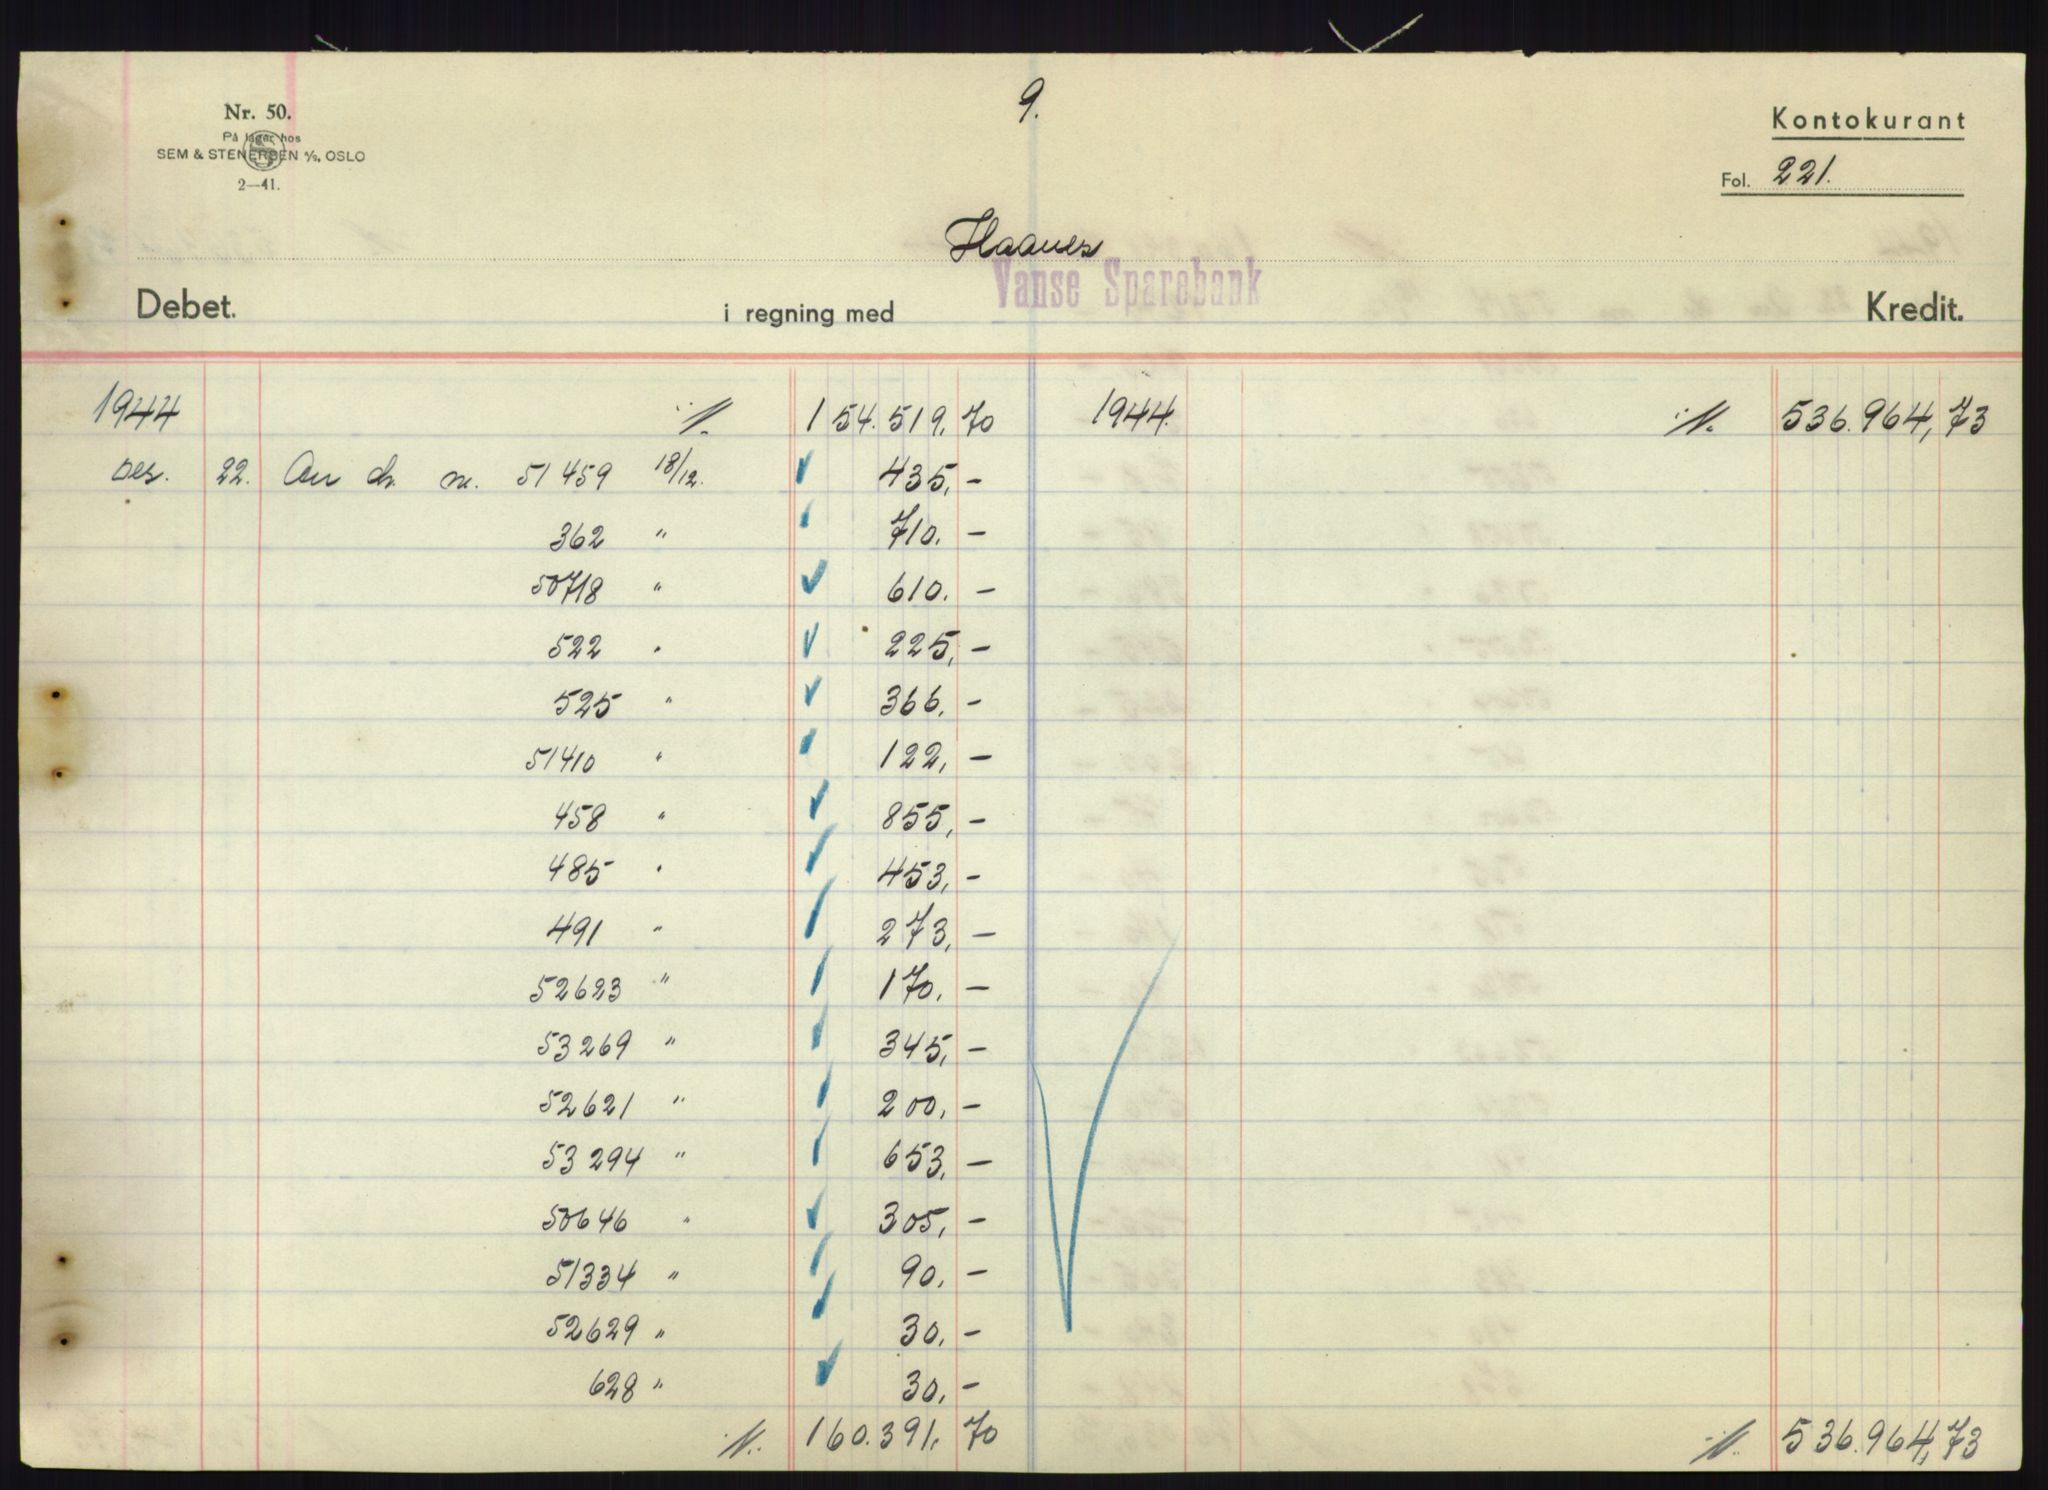 9.
Nr. 50.
På lager hos
SEM & STENERSEN A/S, OSLO
2—41.
Kontokurant
Fol. 221.
Haanes
Vanse Sparebank
Debet. i regning med Kredit.
1944 154.519,70 1944. 536.964,73
Des. 22. An ch. nr. 51459 18/12. 435,-
362 " 710,-
50718 " 610,-
522 " 225,-
525 " 366,-
51410 " 122,-
458 " 855,-
485 " 453,-
491 " 273,-
52623 " 170,-
53269 " 345,-
52621 " 200,-
53294 " 653,-
50646 " 305,-
51334 " 90,-
52629 " 30,-
628 " 30,-
160.391,70 536.964,73